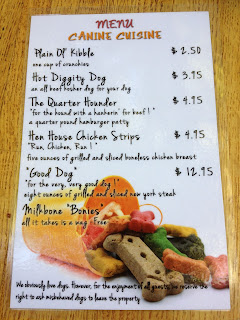 MENU
CANINE CUISINE
Plain Ol' Kibble $ 2.50
one cup of crunchies
Hot Diggity Dog $ 3.95
an all beef kosher dog for your dog
The Quarter Hounder $ 4.95
"for the hound with a hankerin' for beef!"
a quarter pound hamburger patty
Hen House Chicken Strips $ 4.95
"Run, Chicken, Run!"
five ounces of grilled and sliced boneless chicken breast
"Good Dog" $ 12.95
"for the very, very good dog!"
eight ounces of grilled and sliced new york steak
Milkbone "Bonies"
all it takes is a wag - free
We obviously love dogs. However, for the enjoyment of all guests, we reserve the
right to ask misbehaved dogs to leave the property.